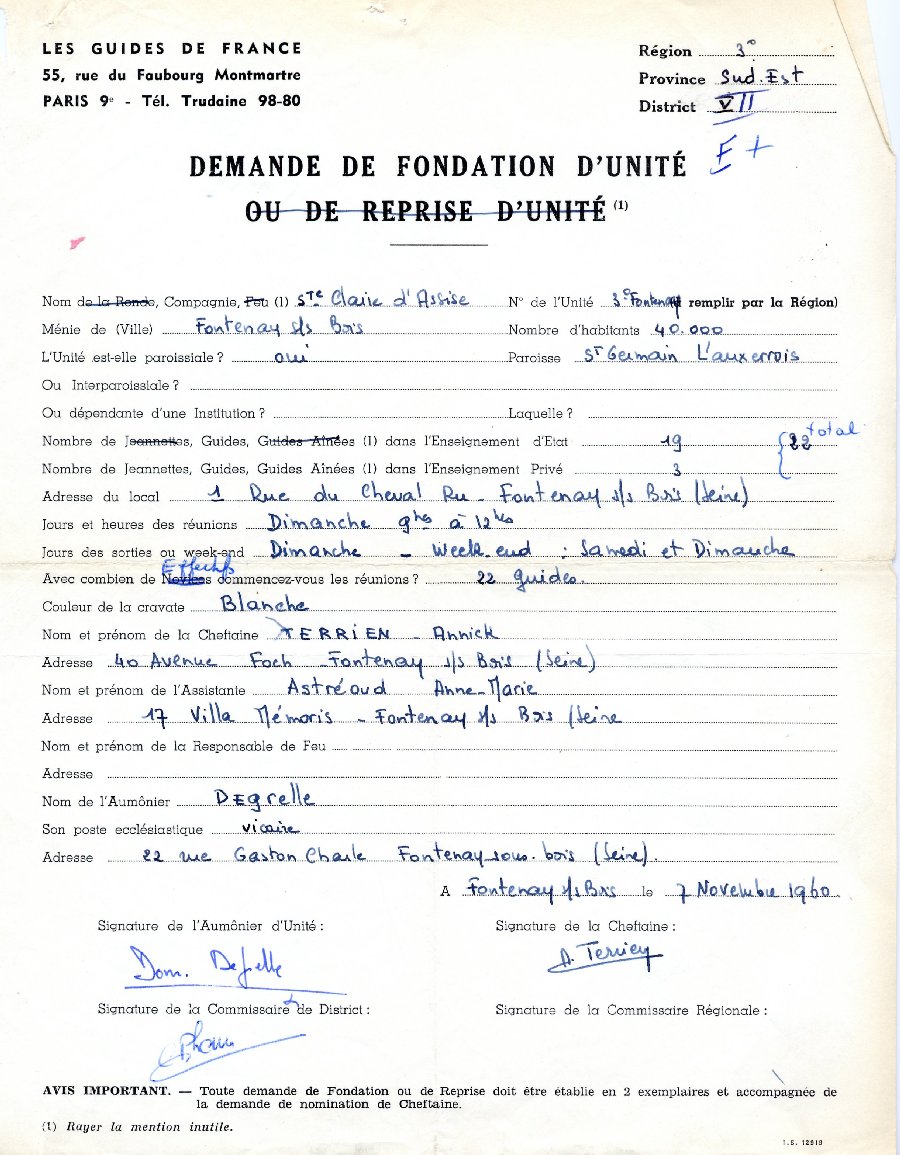 LES GUIDES DE FRANCE
55, rue du Faubourg Montmartre
PARIS 9e - Tél. Trudaine 98-80
Région 3°
Province Sud.Est
District VII
E +
DEMANDE DE FONDATION D'UNITÉ
OU DE REPRISE D'UNITÉ (1)
Nom de la Ronde, Compagnie, Feu (1) Ste Claire d'Assise N° de l'Unité 3° Fontenay remplir par la Région)
Ménie de (Ville) Fontenay s/s Bois Nombre d'habitants 40.000
L'Unité est-elle paroissiale ? oui Paroisse St Germain L'auxerrois
Ou Interparoissiale ?
Ou dépendante d'une Institution ? Laquelle ?
Nombre de Jeannettes, Guides, Guides Aînées (1) dans l'Enseignement d'Etat 19 22 total
Nombre de Jeannettes, Guides, Guides Aînées (1) dans l'Enseignement Privé 3
Adresse du local 1 Rue du Cheval Ru - Fontenay s/s Bois (Seine)
Jours et heures des réunions Dimanche 9hes à 12hes
Jours des sorties ou week-end Dimanche - Week.end : Samedi et Dimanche
Effectifs
Avec combien de Novices commencez-vous les réunions ? 22 guides.
Couleur de la cravate Blanche
Nom et prénom de la Cheftaine TERRIEN - Annick
Adresse 40 Avenue Foch - Fontenay s/s Bois (Seine)
Nom et prénom de l'Assistante Astréoud Anne-Marie
Adresse 17 Villa Mémoris - Fontenay s/s Bois (Seine
Nom et prénom de la Responsable de Feu
Adresse
Nom de l'Aumônier DEgrelle
Son poste ecclésiastique vicaire
Adresse 22 rue Gaston Charle Fontenay-sous-bois (Seine).
A Fontenay s/s Bois le 7 Novembre 1960
Signature de l'Aumônier d'Unité :
Signature de la Cheftaine :
Dom.
A. Terrien
Signature de la Commissaire de District :
Signature de la Commissaire Régionale :
AVIS IMPORTANT. — Toute demande de Fondation ou de Reprise doit être établie en 2 exemplaires et accompagnée de
la demande de nomination de Cheftaine.
(1) Rayer la mention inutile.
I.S. 12919